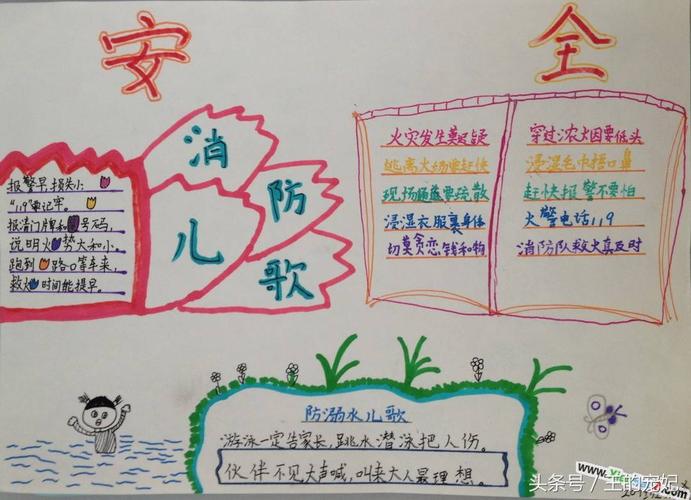 安全
消防儿歌
报警早,损失小
"119"要记牢。
报清门牌和号码,
说明火势大和小,
跑到路口等车来,
救火时间能提早。
火灾发生莫迟疑
逃离火场要赶快
现场通道要疏散
浸湿衣服裹身体
切莫贪恋钱和物
穿过浓烟要低头
浸湿毛巾捂口鼻
赶快报警不要怕
火警电话119
消防队救火真及时
防溺水儿歌
游泳一定告家长,跳水潜泳把人伤。
伙伴不见大声喊,叫来大人最理想。
头条号/王的宠妃